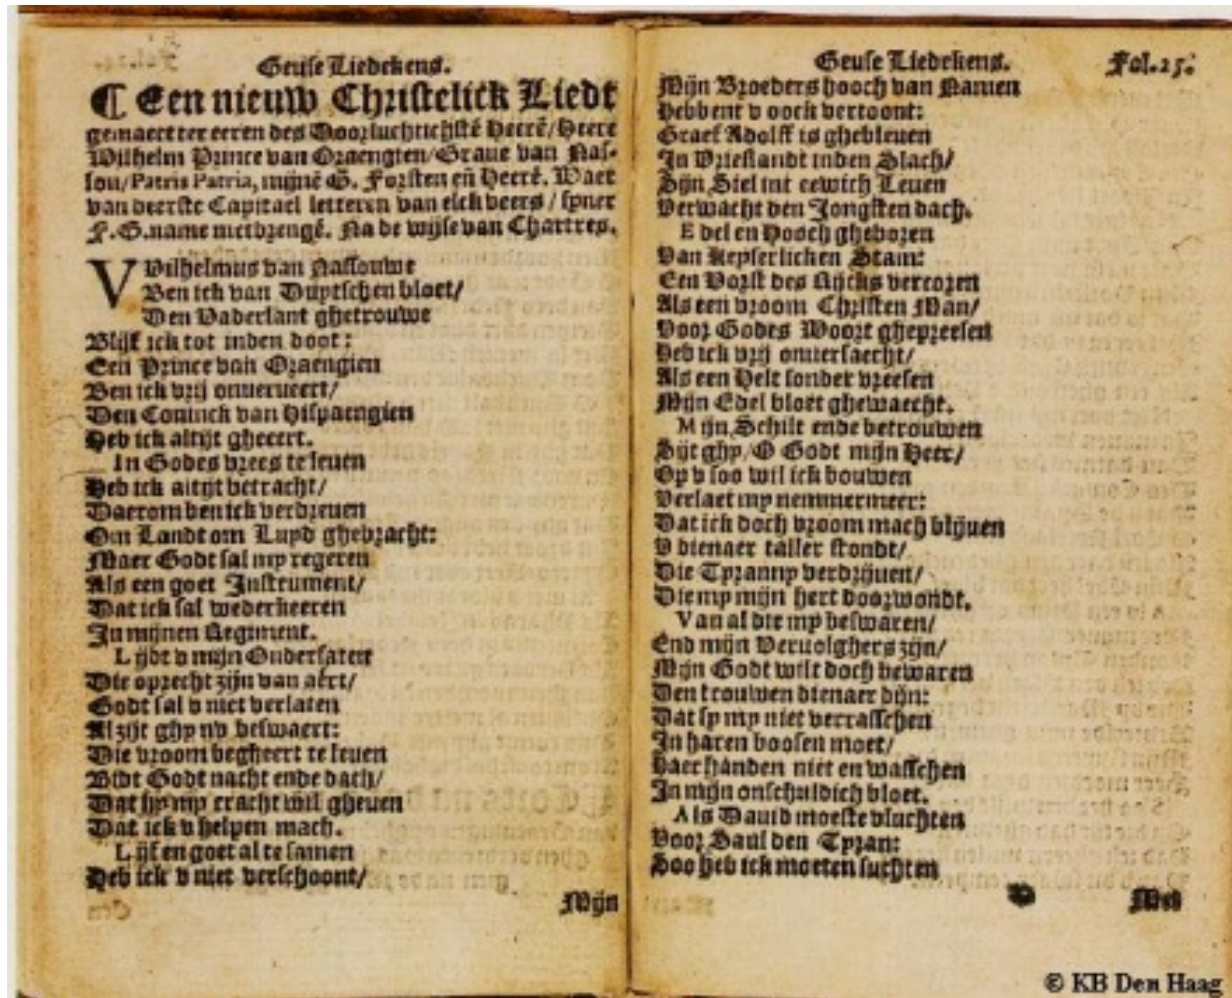 Geuse Liedekens.
¶ Een nieuw Christelick Liedt
gemaect ter eeren des Doorluchtichstē Heerē/Heere
Wilhelm Prince van Oraengien/Graue van Nas-
sou/Patris Patria, mijnē G. Forsten eñ Heerē. Waer
van deerste Capitael letteren van elck veers/syner
F. G. name metbrengē. Na de wijse van Chartres.
VVilhelmus van Nassouwe
Ben ick van Duytschen bloet/
Den Vaderlant ghetrouwe
Blijf ick tot inden doot:
Een Prince van Oraengien
Ben ick vrij onuerueert/
Den Coninck van Hispaengien
Heb ick altijt gheeert.
In Godes vrees te leuen
Heb ick altijt betracht/
Daerom ben ick verdreuen
Om Landt om Luyd ghebracht:
Maer Godt sal my regeren
Als een goet Instrument/
Dat ick sal wederkeeren
In mijnen Regiment.
Lijdt v mijn Ondersaten
Die oprecht zijn van aert/
Godt sal v niet verlaten
Al zijt ghy nv beswaert:
Die vroom begheert te leuen
Bidt Godt nacht ende dach/
Dat hy my cracht wil gheuen
Dat ick v helpen mach.
Lijf en goet al te samen
Heb ick v niet verschoont/
Mijn
Geuse Liedekens. Fol.25.
Mijn Broeders hooch van Namen
Hebbent v oock vertoont:
Graef Adolff is ghebleuen
In Vrieslandt inden Slach/
Sijn Siel int eewich Leuen
Verwacht den Jongsten dach.
Edel en Hooch gheboren
Van Keyserlicken Stam:
Een Vorst des Rijcks vercoren
Als een vroom Christen Man/
Voor Godes Woort ghepreesen
Heb ick vrij onuersaecht/
Als een Helt sonder vreesen
Mijn Edel bloet ghewaecht.
Mijn Schilt ende betrouwen
Sijt ghy/O Godt mijn Heer/
Op v soo wil ick bouwen
Verlaet my nemmermeer:
Dat ick doch vroom mach blijuen
V dienaer taller stondt/
Die Tyranny verdrijuen/
Die my mijn hert doorwondt.
Van al die my beswaren/
End mijn Veruolghers zijn/
Mijn Godt wilt doch bewaren
Den trouwen dienaer dijn:
Dat sy my niet verrasschen
In haren boosen moet/
Haer handen niet en wasschen
In mijn onschuldich bloet.
Als Dauid moeste vluchten
Voor Saul den Tyran:
Soo heb ick moeten suchten
Met
© KB Den Haag